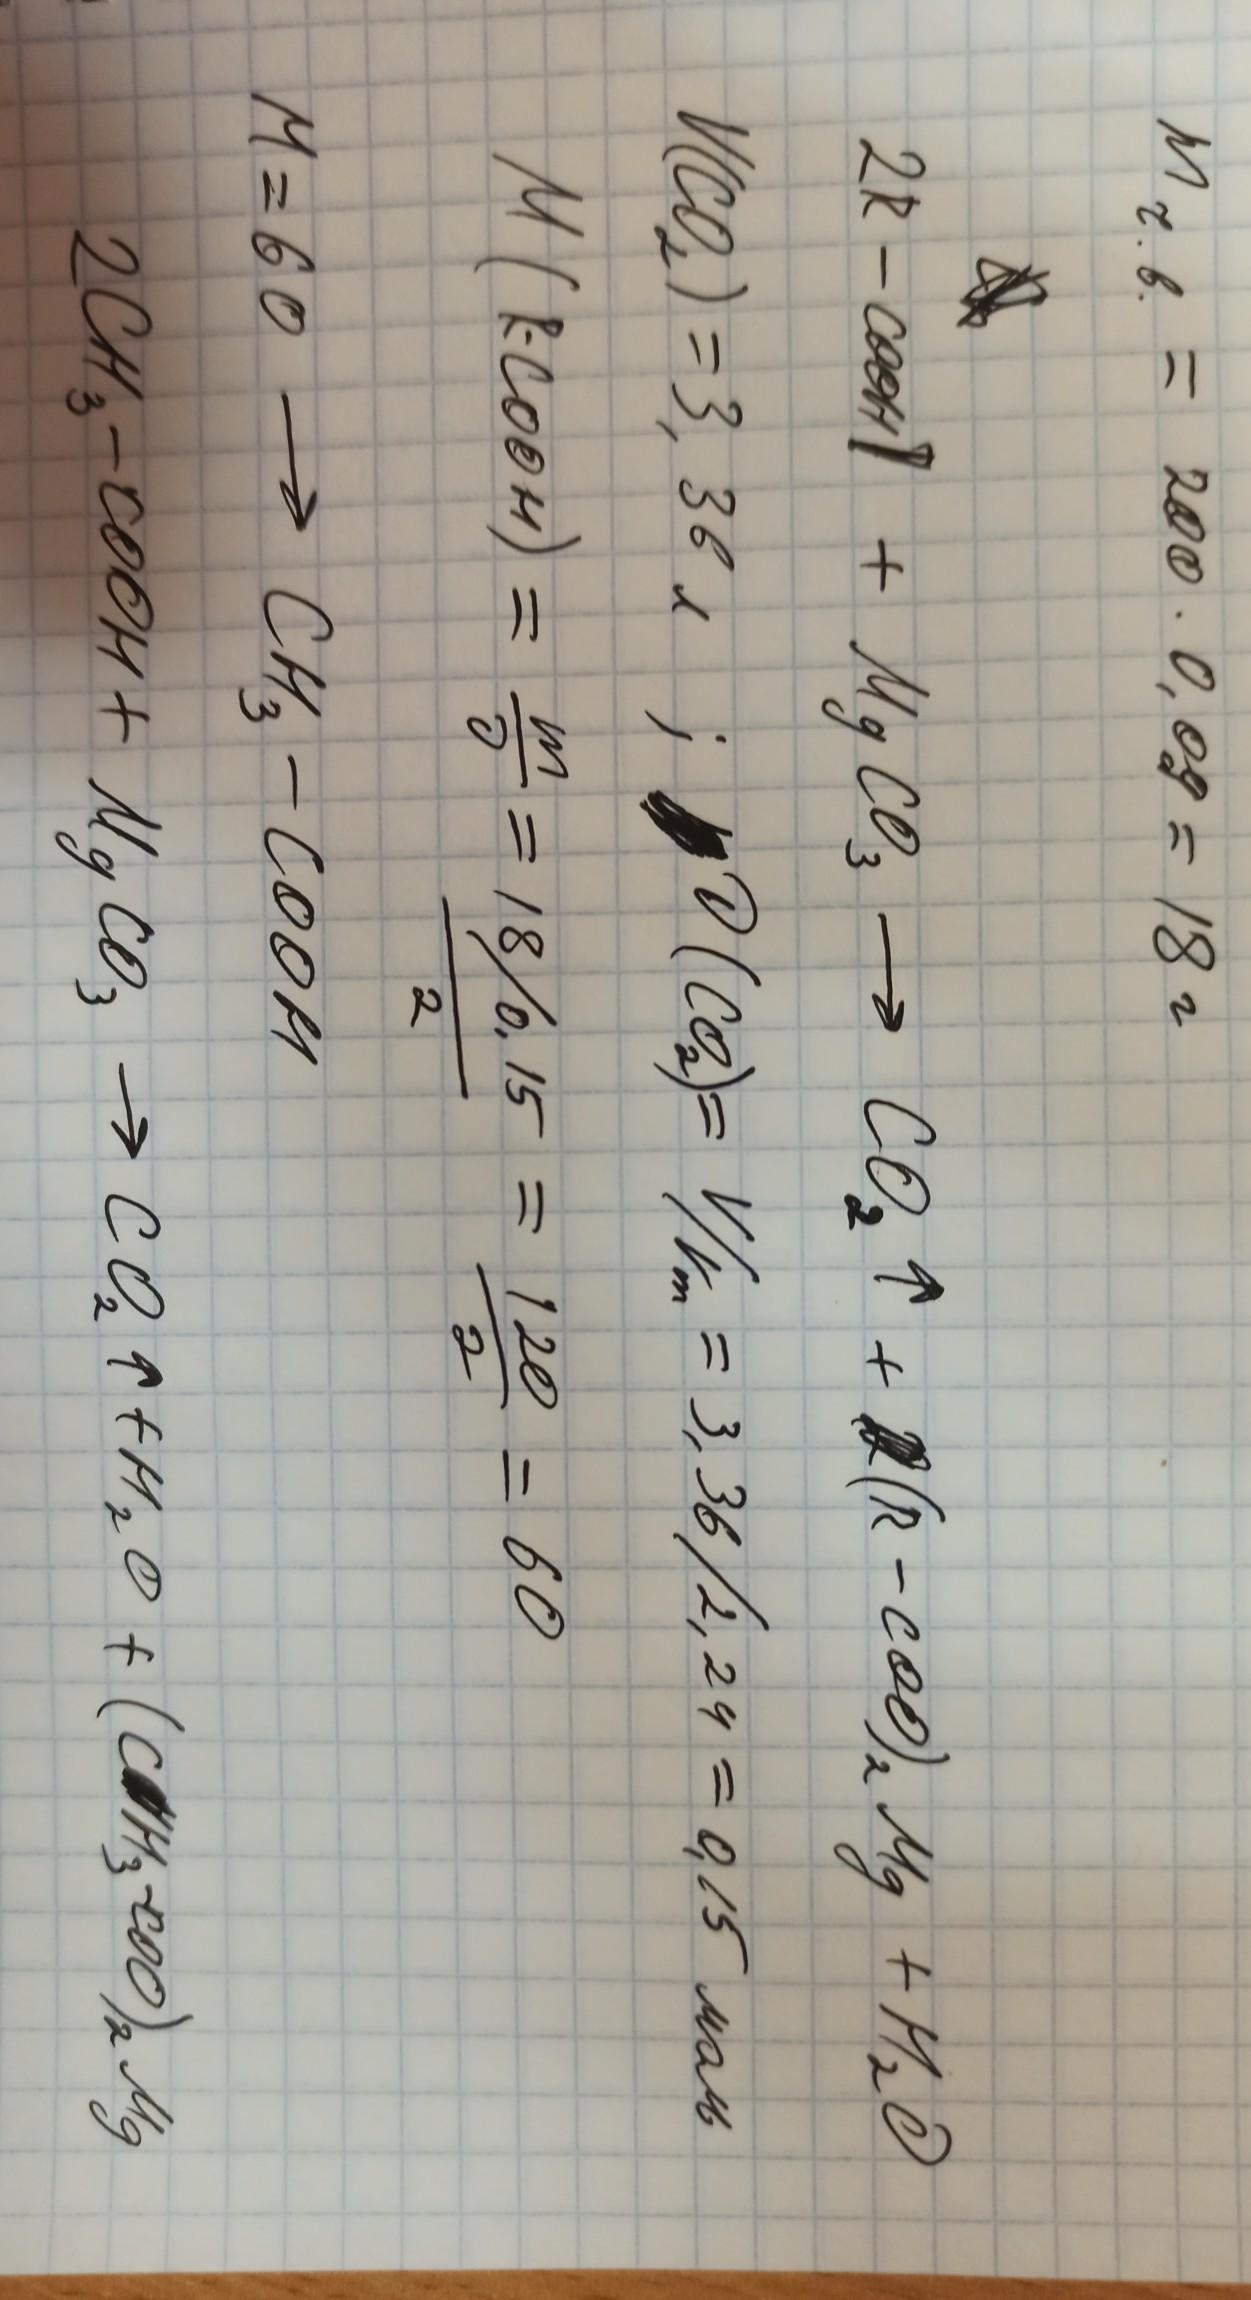 m ч.в. = 200 · 0,09 = 18 г
2R-COOH + MgCO₃ → CO₂↑ + (R-COO)₂Mg + H₂O
V(CO₂) = 3,36 л ; ν(CO₂) = V/Vm = 3,36/2,24 = 0,15 моль
M(R-COOH) = m/ν = (18/0,15)/2 = 120/2 = 60
M = 60 → CH₃-COOH
2CH₃-COOH + MgCO₃ → CO₂↑ + H₂O + (CH₃-COO)₂Mg